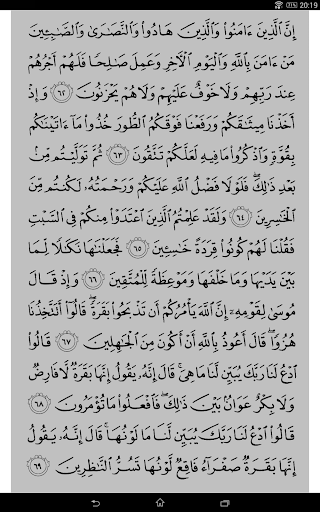 20:19
إِنَّ ٱلَّذِينَ ءَامَنُوا۟ وَٱلَّذِينَ هَادُوا۟ وَٱلنَّصَٰرَىٰ وَٱلصَّٰبِـِٔينَ
مَنْ ءَامَنَ بِٱللَّهِ وَٱلْيَوْمِ ٱلْءَاخِرِ وَعَمِلَ صَٰلِحًا فَلَهُمْ أَجْرُهُمْ
عِندَ رَبِّهِمْ وَلَا خَوْفٌ عَلَيْهِمْ وَلَا هُمْ يَحْزَنُونَ ٦٢ وَإِذْ
أَخَذْنَا مِيثَٰقَكُمْ وَرَفَعْنَا فَوْقَكُمُ ٱلطُّورَ خُذُوا۟ مَآ ءَاتَيْنَٰكُم
بِقُوَّةٍ وَٱذْكُرُوا۟ مَا فِيهِ لَعَلَّكُمْ تَتَّقُونَ ٦٣ ثُمَّ تَوَلَّيْتُم مِّنۢ
بَعْدِ ذَٰلِكَ ۖ فَلَوْلَا فَضْلُ ٱللَّهِ عَلَيْكُمْ وَرَحْمَتُهُۥ لَكُنتُم مِّنَ
ٱلْخَٰسِرِينَ ٦٤ وَلَقَدْ عَلِمْتُمُ ٱلَّذِينَ ٱعْتَدَوْا۟ مِنكُمْ فِى ٱلسَّبْتِ
فَقُلْنَا لَهُمْ كُونُوا۟ قِرَدَةً خَٰسِـِٔينَ ٦٥ فَجَعَلْنَٰهَا نَكَٰلًا لِّمَا
بَيْنَ يَدَيْهَا وَمَا خَلْفَهَا وَمَوْعِظَةً لِّلْمُتَّقِينَ ٦٦ وَإِذْ قَالَ
مُوسَىٰ لِقَوْمِهِۦٓ إِنَّ ٱللَّهَ يَأْمُرُكُمْ أَن تَذْبَحُوا۟ بَقَرَةً ۖ قَالُوٓا۟ أَتَتَّخِذُنَا
هُزُوًا ۖ قَالَ أَعُوذُ بِٱللَّهِ أَنْ أَكُونَ مِنَ ٱلْجَٰهِلِينَ ٦٧ قَالُوا۟
ٱدْعُ لَنَا رَبَّكَ يُبَيِّن لَّنَا مَا هِىَ ۚ قَالَ إِنَّهُۥ يَقُولُ إِنَّهَا بَقَرَةٌ لَّا فَارِضٌ
وَلَا بِكْرٌ عَوَانٌۢ بَيْنَ ذَٰلِكَ ۖ فَٱفْعَلُوا۟ مَا تُؤْمَرُونَ ٦٨
قَالُوا۟ ٱدْعُ لَنَا رَبَّكَ يُبَيِّن لَّنَا مَا لَوْنُهَا ۚ قَالَ إِنَّهُۥ يَقُولُ
إِنَّهَا بَقَرَةٌ صَفْرَآءُ فَاقِعٌ لَّوْنُهَا تَسُرُّ ٱلنَّٰظِرِينَ ٦٩